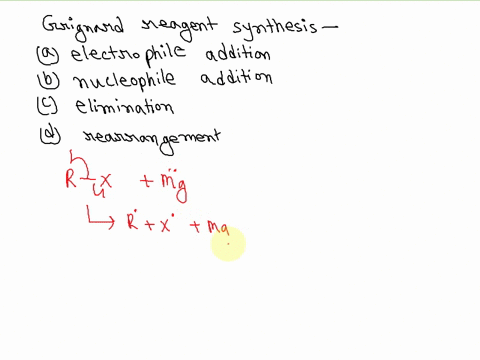 Grignard reagent synthesis —
(a) electrophile addition
(b) nucleophile addition
(c) elimination
(d) rearrangement
R-X + Mg
R• + X• + Mg